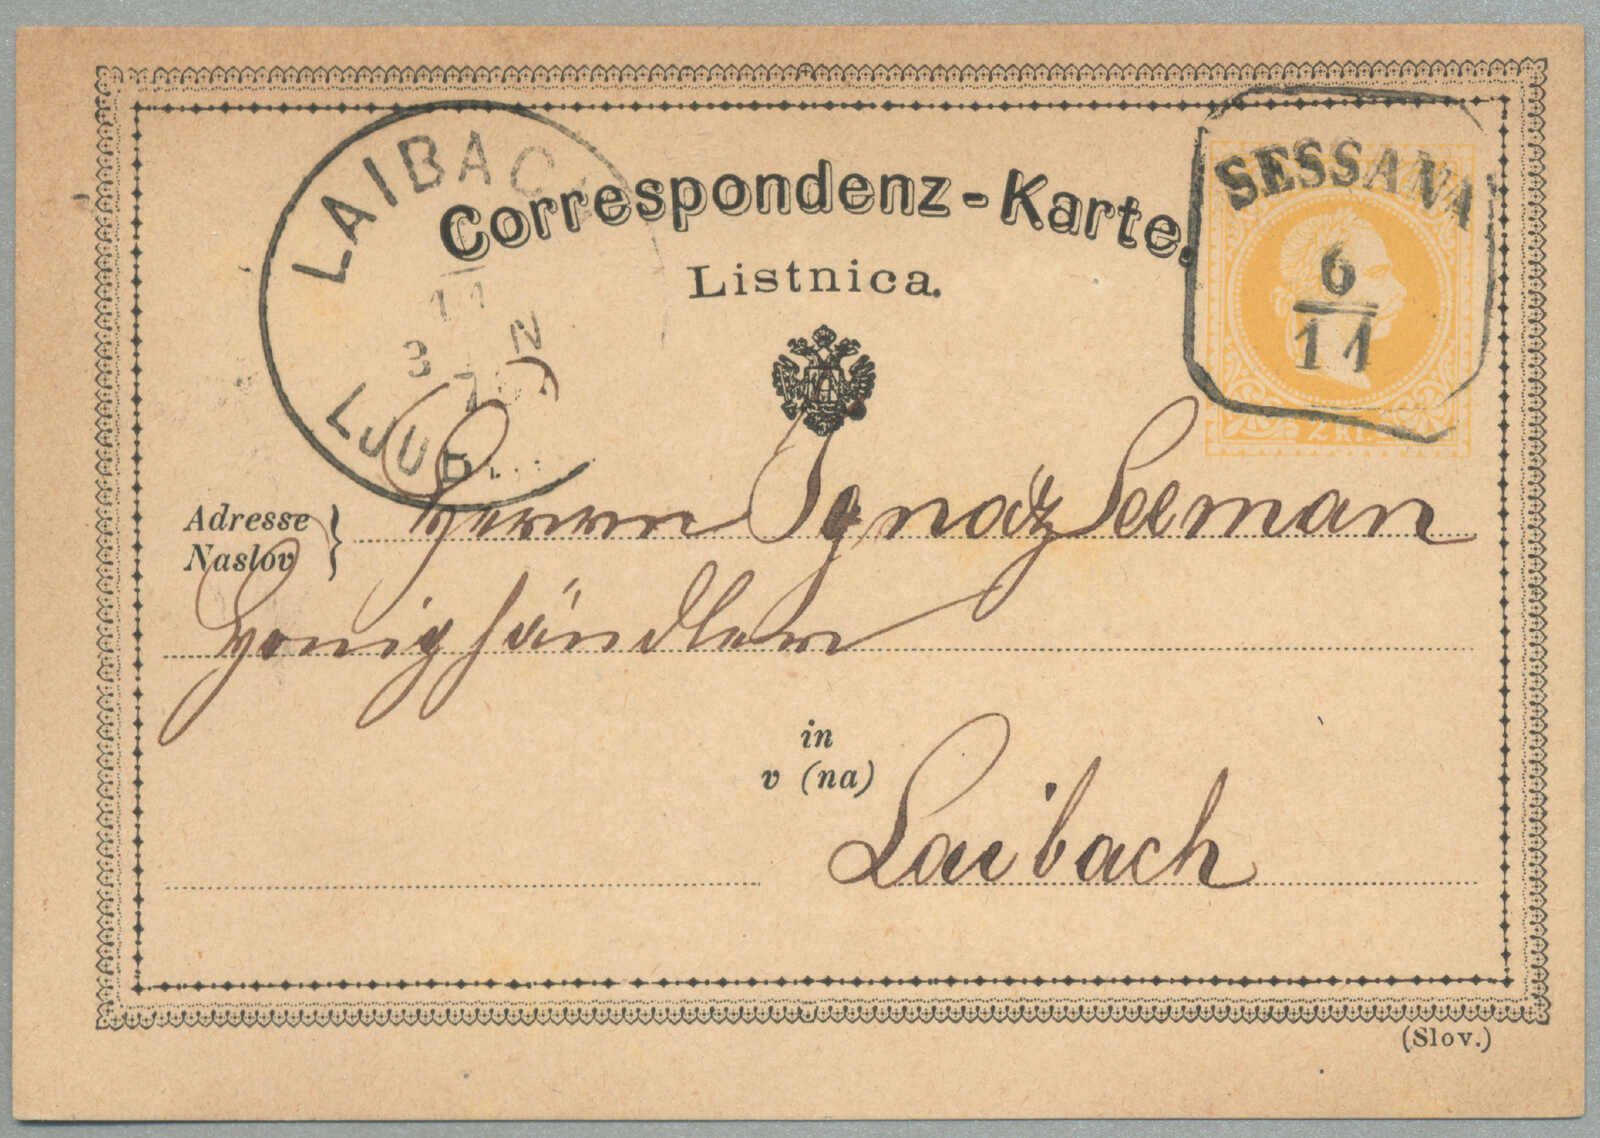 LAIBAC
11
3 N
LJUB...
SESSANA
6
11
2 Kr.
Correspondenz-Karte.
Listnica.
Adresse
Naslov
Herrn Ignatz Seeman
Honighändler
in
v (na)
Laibach
(Slov.)